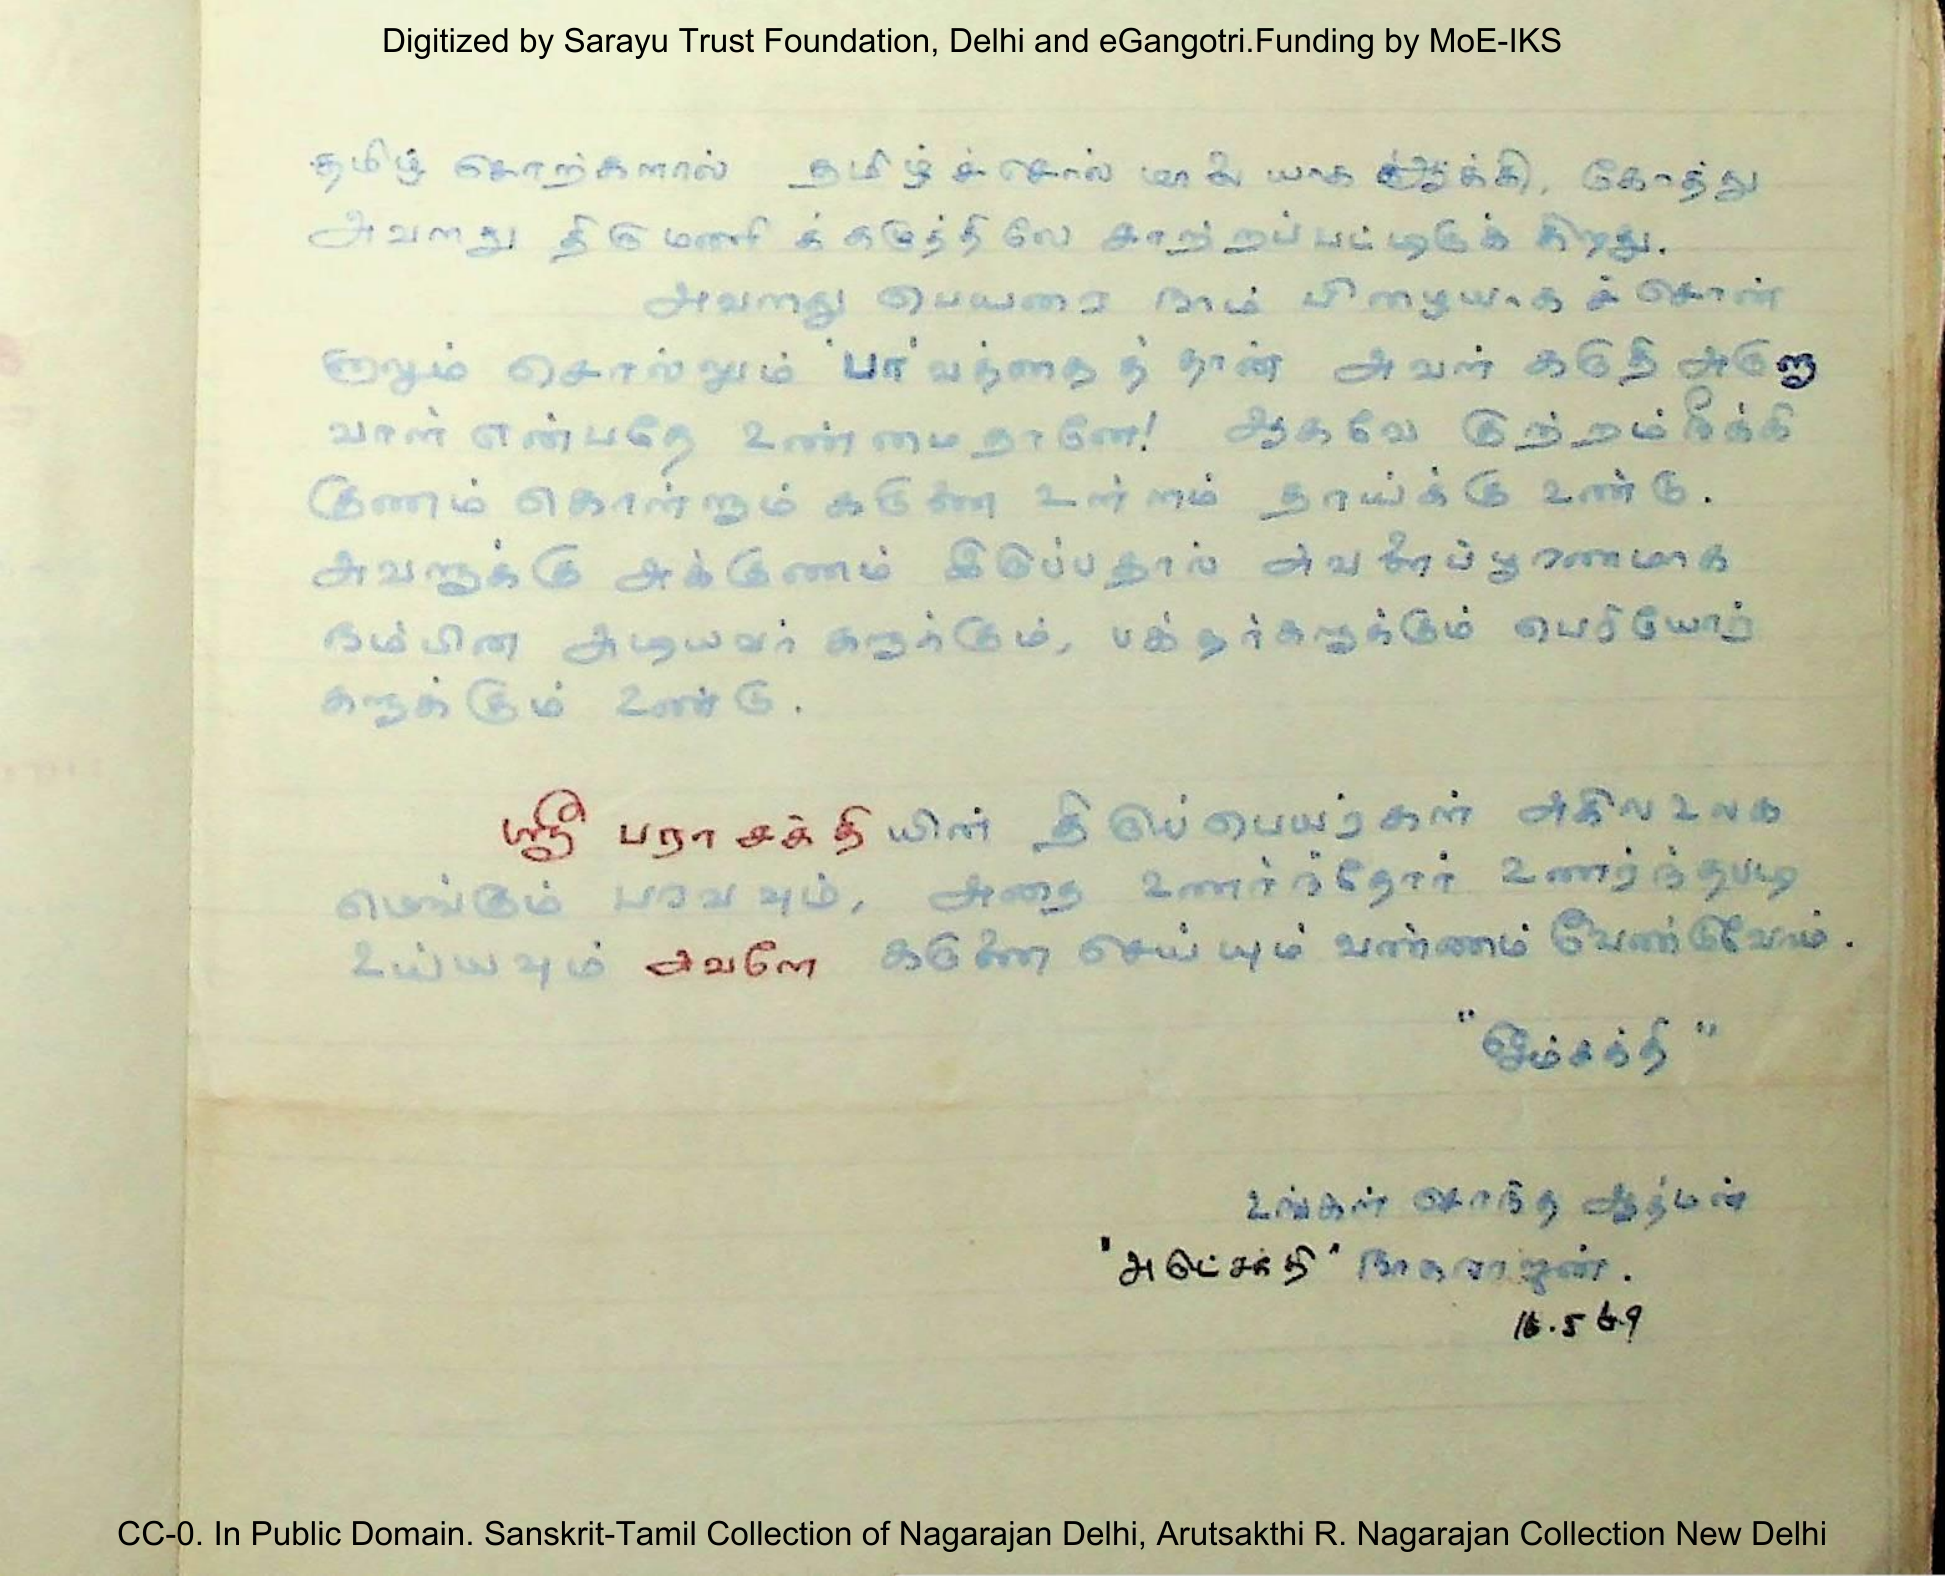 Digitized by Sarayu Trust Foundation, Delhi and eGangotri.Funding by MoE-IKS
தமிழ் சொற்களால் தமிழ்ச்சொல் மாலையாக ஆக்கி, கோத்து
அவளது திருமணிக்கழுத்திலே சாற்றப்பட்டிருக்கிறது.
அவளது பெயரை நாம் பிழையாகச் சொன்
னாலும் சொல்லும் 'பா'வத்தைத் தான் அவள் கருதி அருளு
வாள் என்பதே உண்மைதானே! ஆகவே குற்றம் நீக்கி
குணம் கொள்ளும் கருணை உள்ளம் தாய்க்கு உண்டு.
அவளுக்கு அக்குணம் இருப்பதால் அவளைப்பூரணமாக
நம்பின அடியவர்களுக்கும், பக்தர்களுக்கும் பெரியோர்
களுக்கும் உண்டு.
ஸ்ரீ பராசக்தியின் திருப்பெயர்கள் அகில உலக
மெங்கும் பரவவும், அதை உணர்ந்தோர் உணர்ந்தபடி
உய்யவும் அவளே கருணை செய்யும் வண்ணம் வேண்டுவோம்.
"ஓம்சக்தி"
உங்கள் சொந்த ஆத்மன்
"அருட்சக்தி" நாகராஜன்.
16.5.69
CC-0. In Public Domain. Sanskrit-Tamil Collection of Nagarajan Delhi, Arutsakthi R. Nagarajan Collection New Delhi